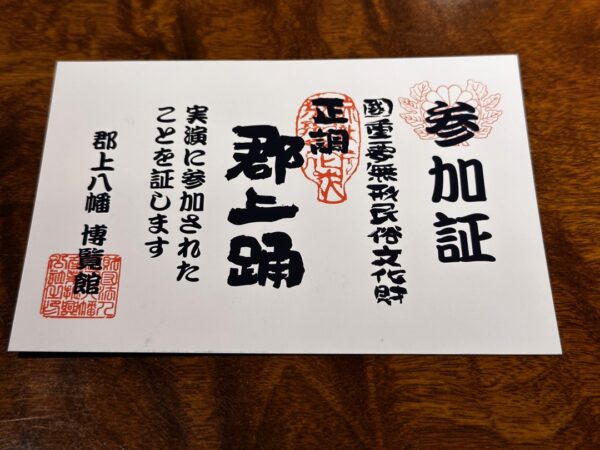 参加証
國重要無形民俗文化財
正調
郡上踊
実演に参加された
ことを証します
郡上八幡 博覧館